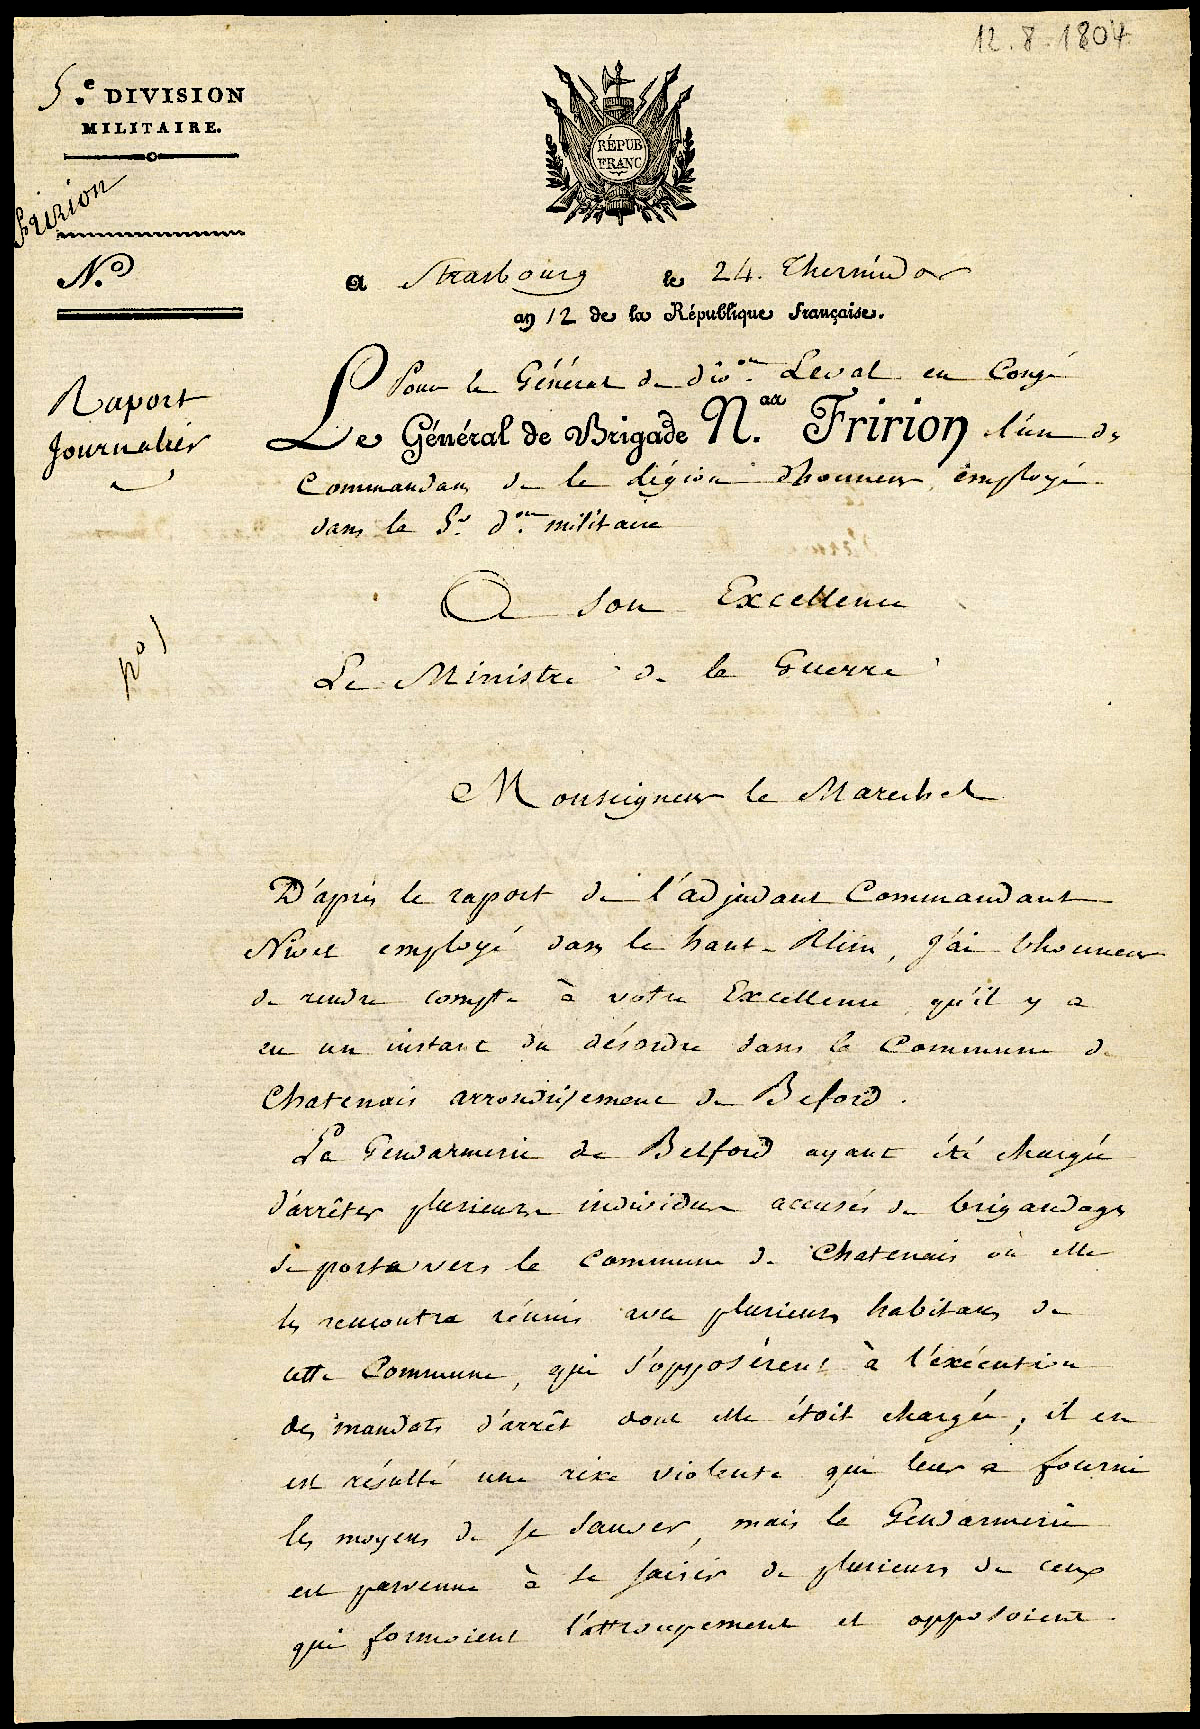 12.8.1804
5.e DIVISION
MILITAIRE.
Fririon
N.o
RÉPUB
FRANC
a Strasbourg le 24. Thermidor
an 12 de la République française.
Raport
Journalier
Pour le Général de div.on Leval en Congé
Le Général de Brigade N.as Fririon l'un des
Commandans de la légion d'honneur, employé
dans la 5.e d.on militaire
A Son Excellence
Le Ministre de la Guerre
n.o 1
Monseigneur le Marechal
D'après le raport de l'adjudant Commandant
Nivet employé dans le haut-Rhin, j'ai l'honneur
de rendre compte à votre Excellence qu'il y a
eu un instant du désordre dans la Commune de
Chatenais arrondissement de Beford.
La Gendarmerie de Belford ayant été chargée
d'arrêter plusieurs individus accusés de brigandages
se porta vers la Commune de Chatenais où elle
les rencontra réunis avec plusieurs habitans de
cette Commune, qui s'opposérent à l'éxécution
des mandats d'arrêt dont elle étoit chargée; il en
est résulté une rixe violente qui leur a fourni
les moyens de se sauver, mais la Gendarmerie
est parvenue à se saisir de plusieurs de ceux
qui formoient l'attroupement et opposoient